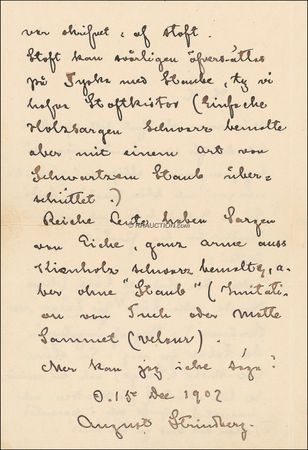 var skrifvet, af stoft.
Stoft kan svårligen öfversättas
på Tyska med Staube, ty vi
hafva Stoftkistor (Einfache
Holzsargen Schwarz bemalte
aber mit einem Art von
Schwartzem Staub über-
schüttet.)
Reiche Leute haben Sargen
von Eiche, ganz arme auss
Kienholz schwarz bemalte, a-
ber ohne "Staub" (Imitati-
on von Tuch oder Matte
Sammet (velour).
Mer kan jag icke säga!
D. 15e Dec 1902
August Strindberg.
RRAUCTION.com